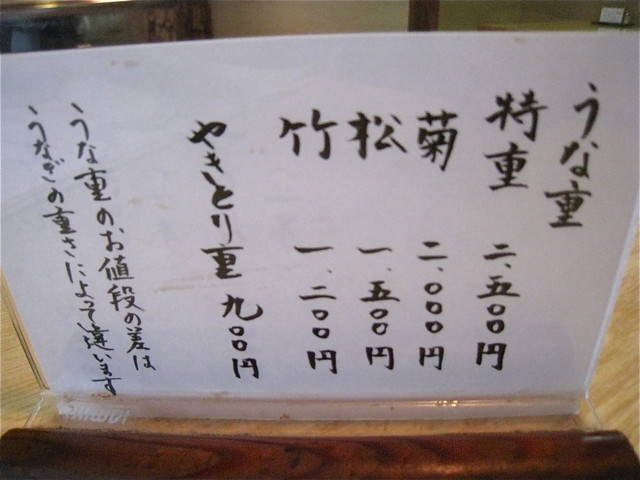 うな重
特重 二、五〇〇円
菊 二、〇〇〇円
松 一、五〇〇円
竹 一、二〇〇円
やきとり重 九〇〇円
うな重のお値段の差は
うなぎの重さによって違います